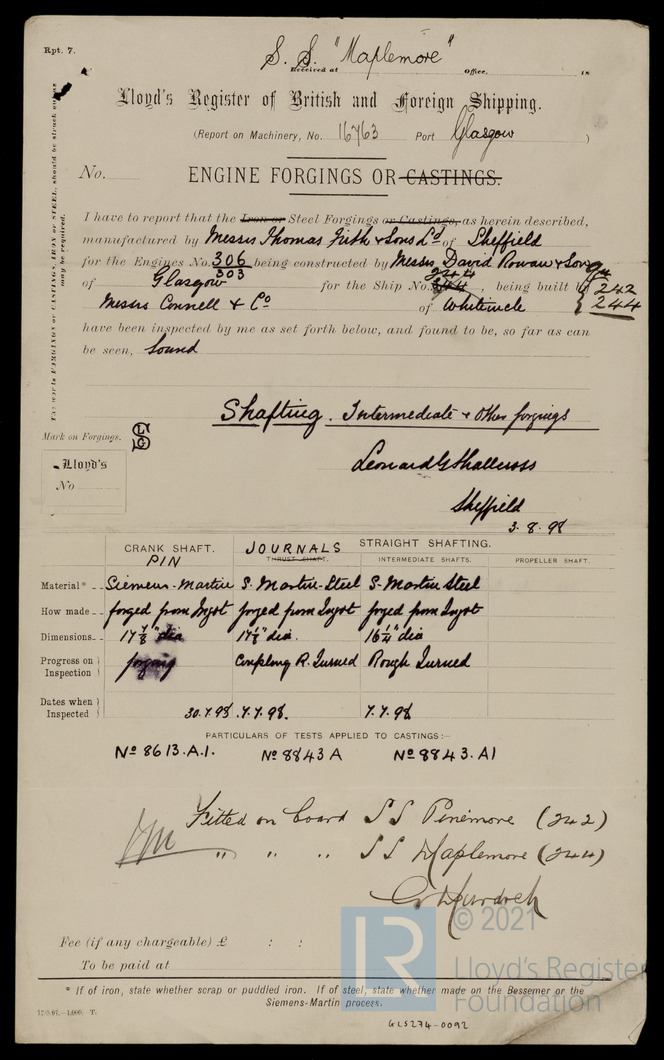 Rpt. 7.
S. S. "Maplemore"
Received at Office, 18
Lloyd's Register of British and Foreign Shipping.
(Report on Machinery, No. 16763 Port Glasgow )
No.
ENGINE FORGINGS OR CASTINGS.
I have to report that the Iron or Steel Forgings or Castings, as herein described,
manufactured by Messrs Thomas Firth & Sons Ld of Sheffield
for the Engines No. 306 being constructed by Messrs David Rowan & Son
303 244
of Glasgow for the Ship No. 344, being built by 242
Messrs Connell & Co of Whiteinch 244
have been inspected by me as set forth below, and found to be, so far as can
be seen, Sound
The words FORGINGS or CASTINGS, IRON or STEEL, should be struck out as
may be required.
Shafting. Intermediate & Other forgings
Mark on Forgings.
Lloyd's
No
Leonard G Shallcross
Sheffield
3.8.98
CRANK SHAFT. JOURNALS STRAIGHT SHAFTING.
PIN THRUST SHAFT. INTERMEDIATE SHAFTS. PROPELLER SHAFT.
Material* Siemens-Martin S. Martin-Steel S. Martin Steel
How made forged from Ingot forged from Ingot forged from Ingot
Dimensions 17 7/8" dia 17 1/8" dia. 16 1/4" dia
Progress on Inspection } forging Coupling R. Turned Rough Turned
Dates when Inspected } 30.7.98 .7.7.98. 7.7.98
PARTICULARS OF TESTS APPLIED TO CASTINGS:—
No 8613.A.1. No 8843 A No 8843.A1
Fitted on board S S Pinemore (242)
" " " S S Maplemore (244)
Fee (if any chargeable) £ : :
To be paid at
* If of iron, state whether scrap or puddled iron. If of steel, state whether made on the Bessemer or the
Siemens-Martin process.
GLS274-0092
LR
© 2021
Lloyd's Register
Foundation